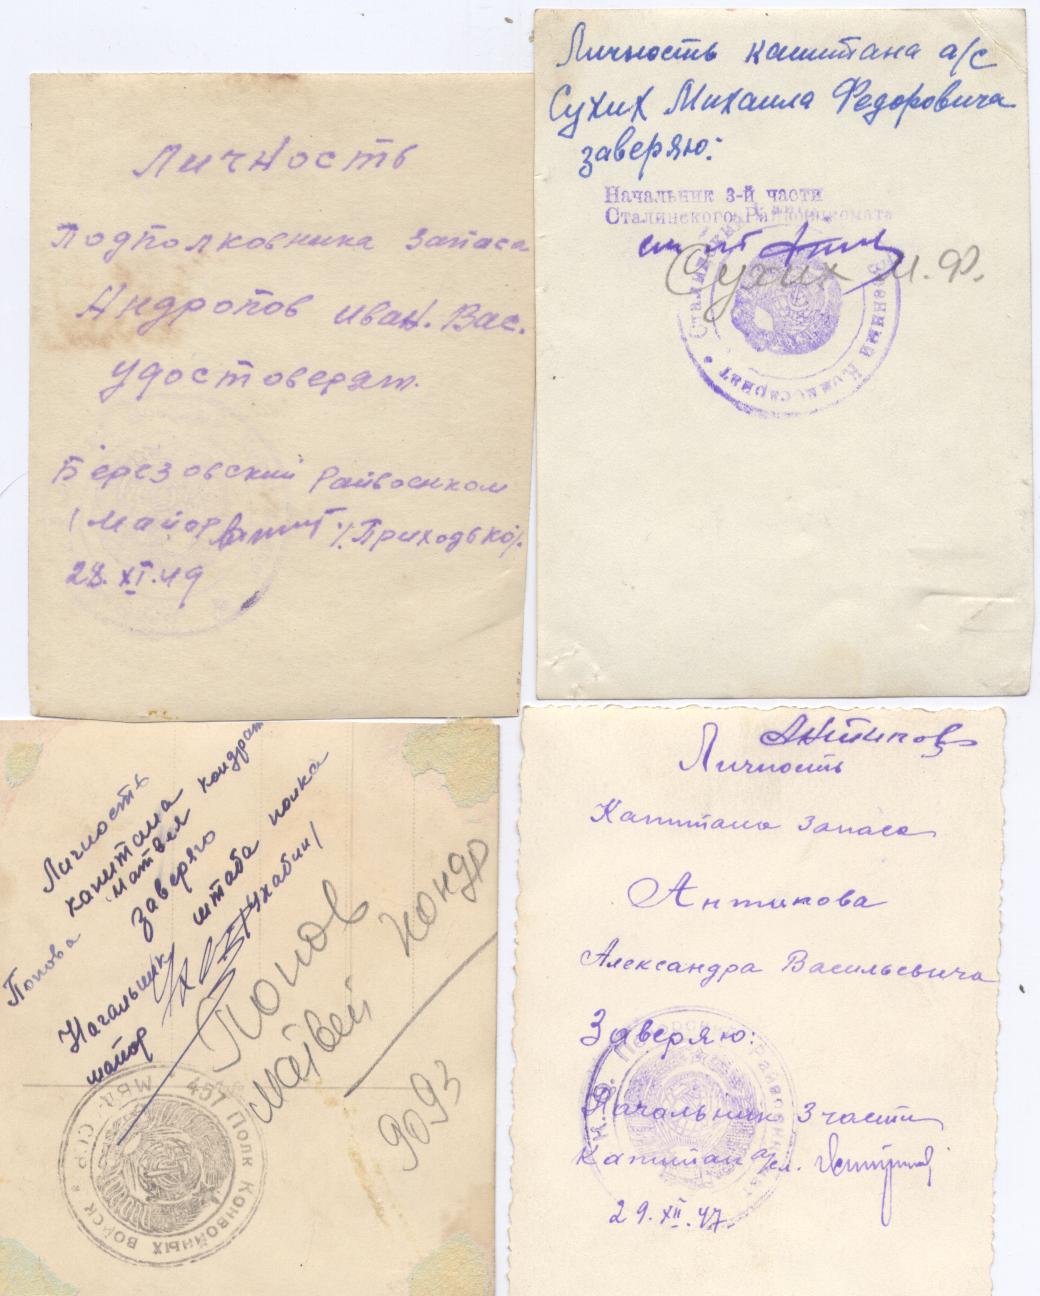 Личность
Подполковника запаса
Андропов Иван. Вас.
удостоверят.
Березовский Райвоенком
/Майор /Приходько/.
28.XI.49
Личность капитана а/с
Сухих Михаила Федоровича
заверяю:
Начальник 3-й части
Сталинского Райвоенкомата
Сухих М.Ф.
Военный Комиссариат
Личность
капитана
Попова Матвея Кондрат
Заверяю
Начальник штаба полка
майор /Трухабин/
Попов
Матвей Кондр
9093
МВД СССР 457 Полк Конвойных Войск
Антипов
Личность
Капитана запаса
Антипова
Александра Васильевича
Заверяю:
Начальник 3 части
Капитан а/сл.
29.XII.47